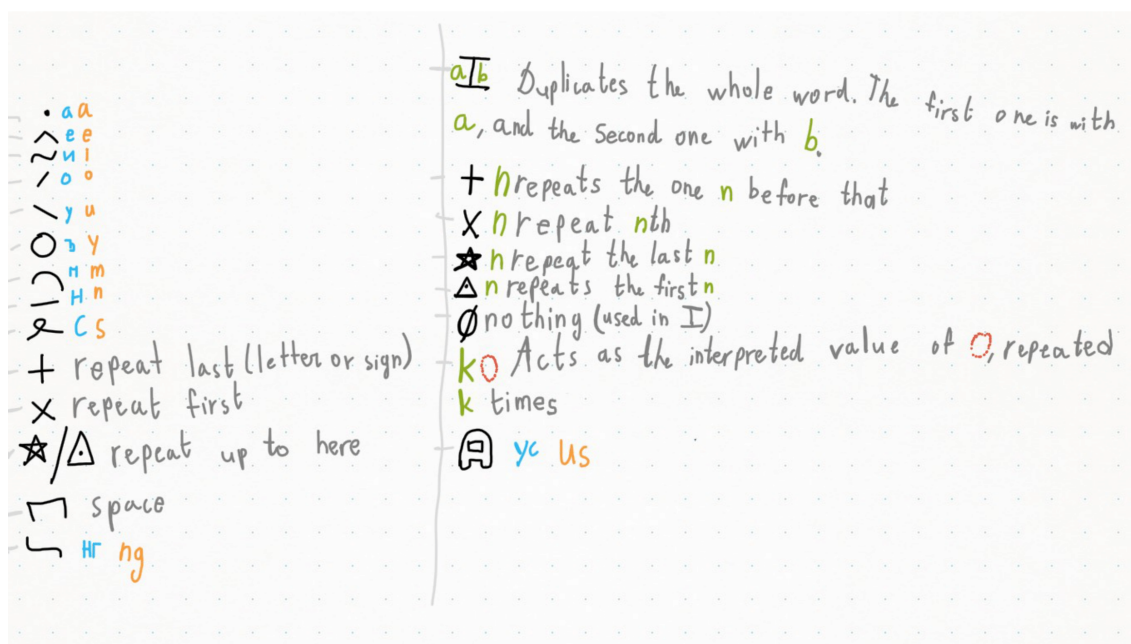 a a
e e
и i
о o
у u
ъ y
м m
н n
с s
+ repeat last (letter or sign)
× repeat first
☆/△ repeat up to here
space
нг ng
a I b Duplicates the whole word. The first one is with
a, and the second one with b.
+ n repeats the one n before that
× n repeat nth
☆ n repeat the last n
△ n repeats the first n
∅ nothing (used in I)
k O Acts as the interpreted value of O, repeated
k times
ус us